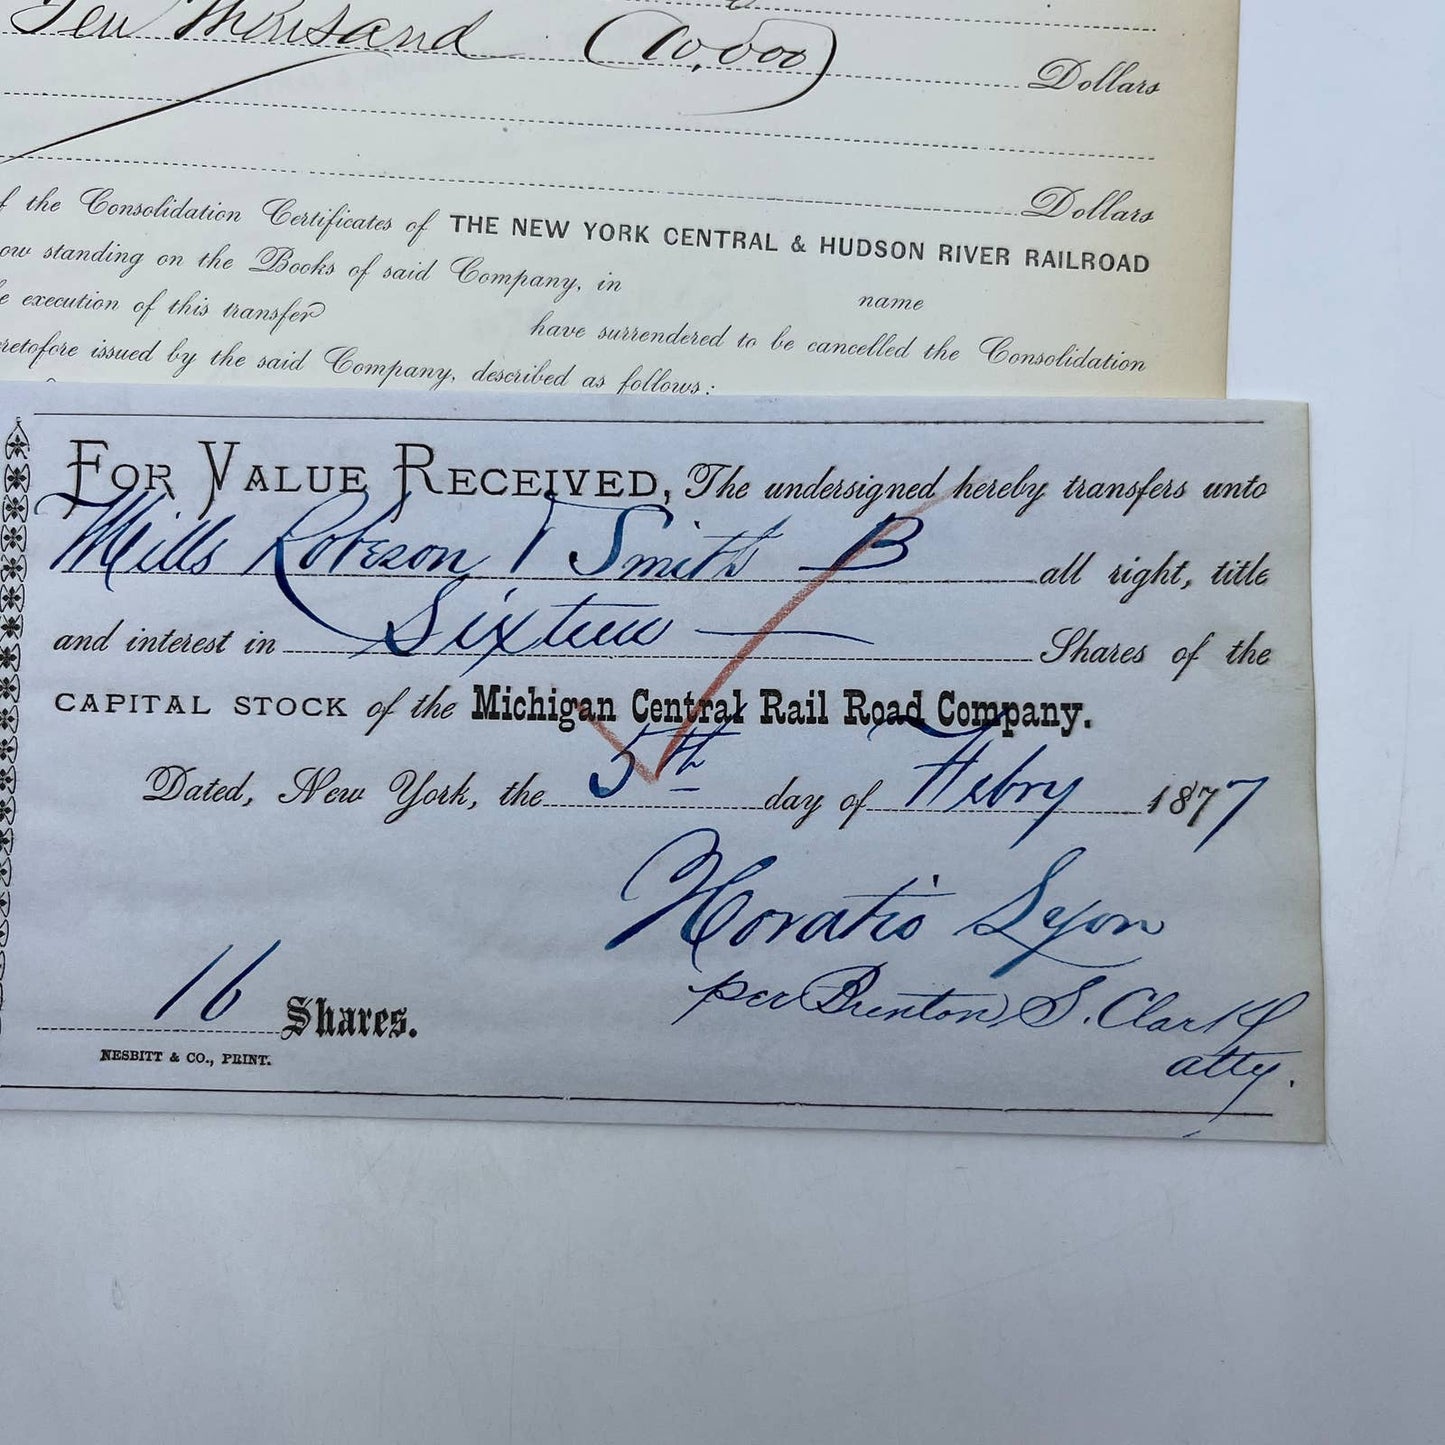 Ten Thousand (10,000) Dollars
Dollars
of the Consolidation Certificates of THE NEW YORK CENTRAL & HUDSON RIVER RAILROAD
ow standing on the Books of said Company, in name
e execution of this transfer have surrendered to be cancelled the Consolidation
retofore issued by the said Company, described as follows:
FOR VALUE RECEIVED, The undersigned hereby transfers unto
Mills Robeson & Smith B all right, title
and interest in Sixteen Shares of the
CAPITAL STOCK of the Michigan Central Rail Road Company.
Dated, New York, the 5th day of Febry 1877
Horatio Lyon
per Brenton S. Clark
atty.
16 Shares.
NESBITT & CO., PRINT.